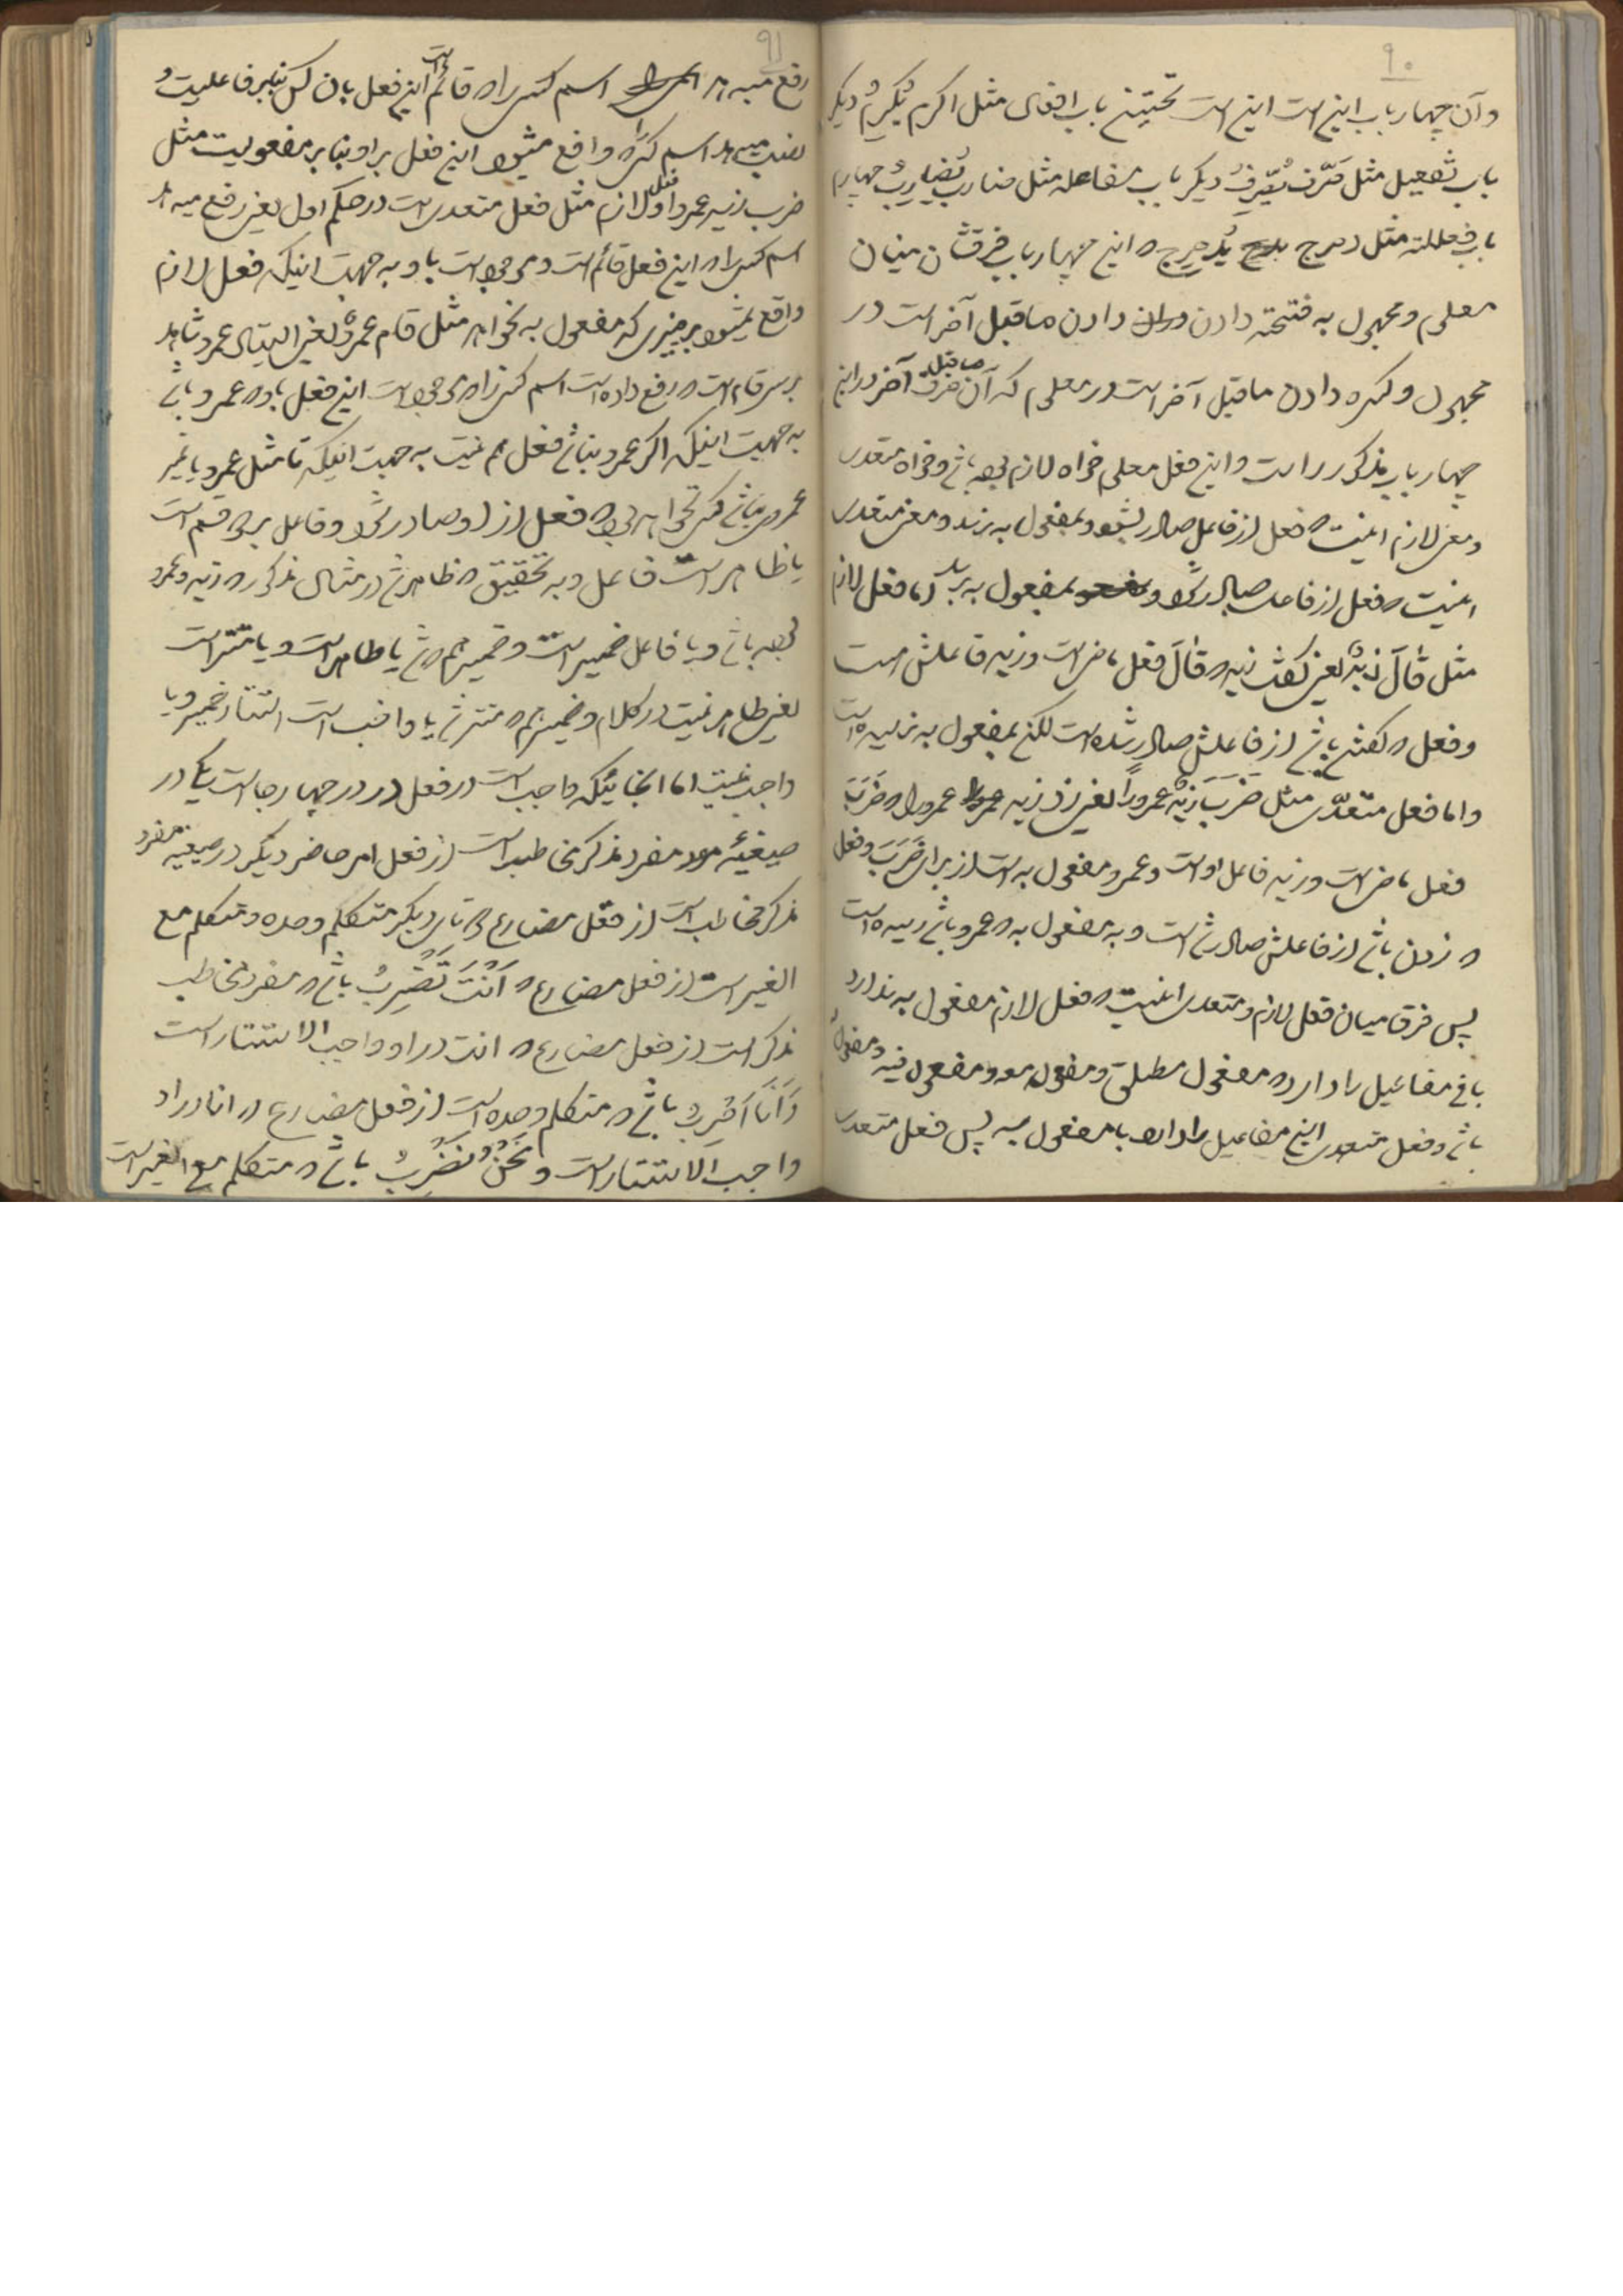 ۹۰
وآن چهار باب اینست اینست نخستین باب افعال مثل اکرم یُکْرِمُ دیکر
باب تفعیل مثل صَرَّف یُصَرِّفُ دیکر باب مفاعله مثل ضارب یُضارِبُ چهارم
باب فعلله مثل دحرج یُدَحْرِجُ که این چهار باب فرقشان میان
معلوم ومجهول به فتحه دادن دادن ماقبل آخر است در
مجهول وکسره دادن ماقبل آخر است در معلوم که آن حرف ماقبل آخر در این
چهار باب مذکور راست واین فعل معلوم خواه لازم بوده باشد وخواه متعدی
ومعنی لازم اینست که فعل از فاعل صادر بشود وبمفعول به نرسد ومعنی متعدی
اینست که فعل از فاعل صادر شود وبمفعول به برسد اما فعل لازم
مثل قالَ زیدٌ یعنی کفت زید که قالَ فعل ماضی است وزید فاعلش است
وفعل که کفتن باشد از فاعلش صادر شده است لکن بمفعول به نرسیده است
واما فعل متعدّی مثل ضَرَبَ زیدٌ عمرواً یعنی زد زید عمرو را که ضَرَبَ
فعل ماضی است وزید فاعل اوست وعمرو مفعول به است از برای ضَرَبَ وفعل
که زدن باشد از فاعلش صادر شده است وبه مفعول به که عمرو باشد رسیده است
پس فرق میان فعل لازم ومتعدی اینست که فعل لازم مفعول به ندارد
باقی مفاعیل را دارد که مفعول مطلق ومفعول معه ومفعول فیه ومفعول له
باشد وفعل متعدی این مفاعیل را دارد با مفعول به پس فعل متعدی
۹۱
رفع میدهد اسم کسی را که قائم است این فعل بان کس بنابر فاعلیت و
نصب میدهد اسم کسی را که واقع میشود این فعل بر او بنابر مفعولیت مثل
ضرب زید عمروا وفعل لازم مثل فعل متعدی است در حکم اول یعنی رفع میدهد
اسم کسی را که این فعل قائم است وموجود است باو به جهت اینکه فعل لازم
واقع نمیشود بر چیزی که مفعول به بخواهد مثل قام عمروٌ یعنی ایستاد عمرو شاهد
بر سر قام است که رفع داده است اسم کسی را که موجود است این فعل باو که عمرو باشد
به جهت اینکه اکر عمرو نباشد فعل هم نیست به جهت اینکه تا مثل عمرو یا غیر
عمرو نباشد کسی نخواهد بود که فعل از او صادر شود وفاعل بر دو قسم است
یا ظاهر است فاعل وبه تحقیق که ظاهرش در مثال مذکور که زید وعمرو
بوده باشد ویا فاعل ضمیر است وضمیر هم که شد یا ظاهر است ویا مستتر است
یعنی ظاهر نیست در کلام وضمیر هم که مستتر شد یا واجب است استتار ضمیر ویا
واجب نیست اما انجائیکه واجب است در فعل در چهار جا است یکی در
صیغهٔ مفرد مذکر مخاطب است از فعل امر حاضر دیکر در صیغه مفرد
مذکر مخاطب است از فعل مضارع دو تای دیکر متکلم وحده ومتکلم مع
الغیر است از فعل مضارع که اَنْتَ تَضْرِبُ باشد که مفرد مخاطب
مذکر است از فعل مضارع که انت در او واجب الاستتار است
وَاَنَا اَضْرِبُ باشد که متکلم وحده است از فعل مضارع که انا در او
واجب الاستتار است ونَحْنُ نَضْرِبُ باشد که متکلم مع الغیر است